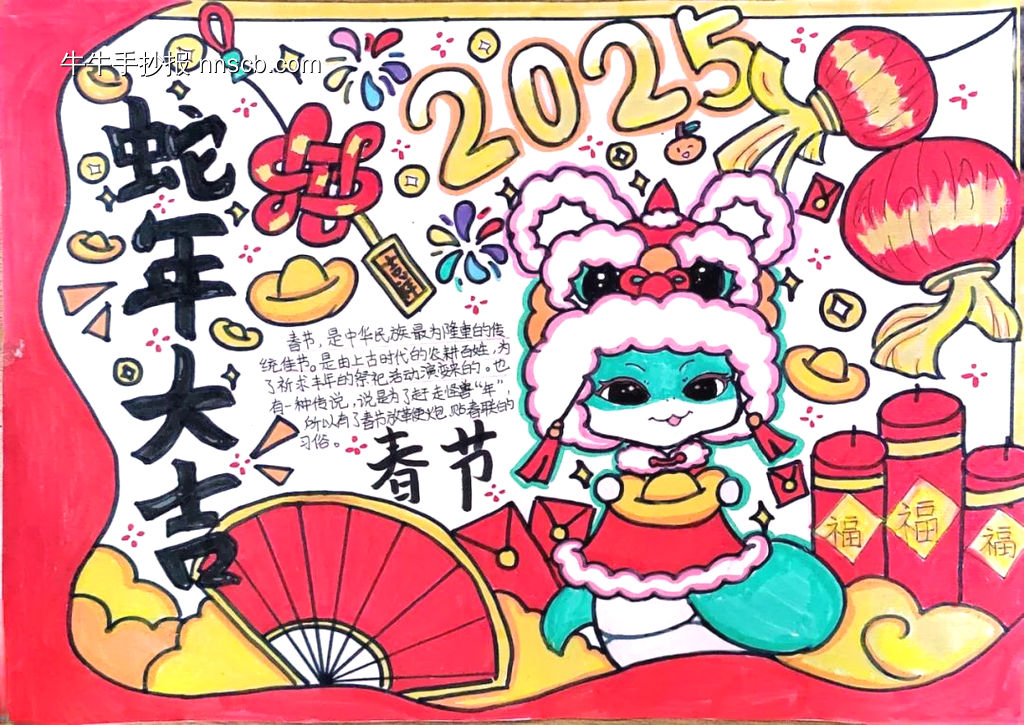 牛牛手抄报 nnscb.com
2025
蛇年大吉
春节，是中华民族最为隆重的传
统佳节。是由上古时代的农耕百姓，为
了祈求丰年的祭祀活动演变来的。也
有一种传说，说是为了赶走怪兽“年”，
所以有了春节放革便火包，贴春联的
习俗。
春节
福
福
福